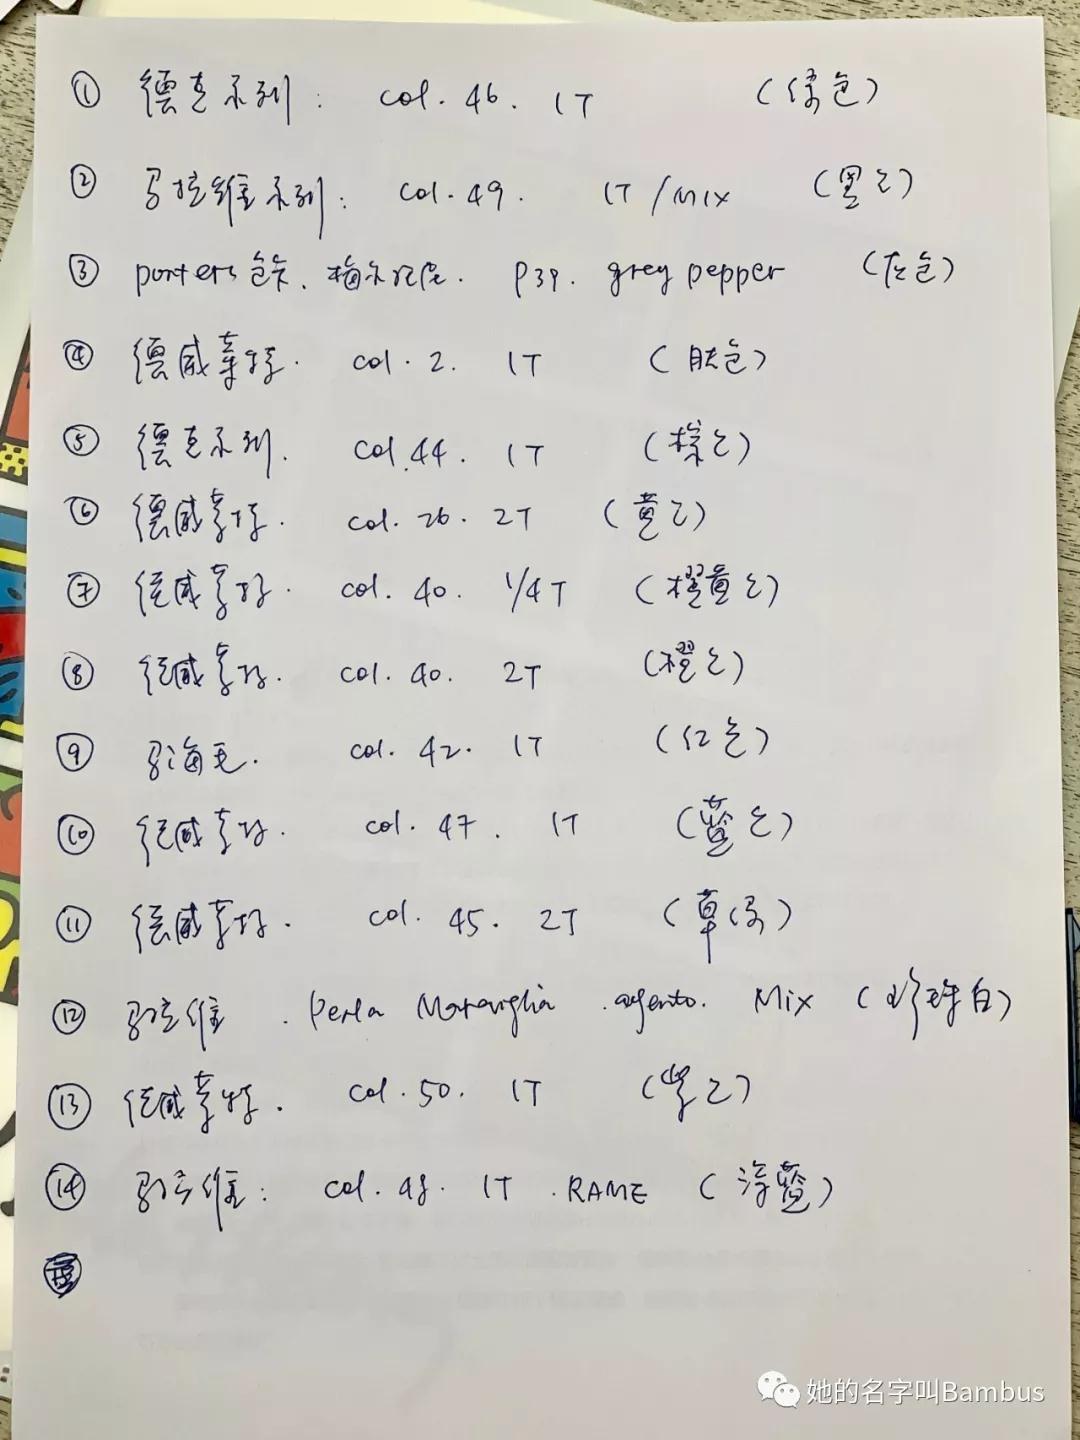 ① 德克系列: col. 46. 1T (绿色)
② 马拉维系列: col. 49. 1T/MIX (黑色)
③ porters色卡. 梅尔 P39. grey pepper (灰色)
④ 德威莱特. col. 2. 1T (肤色)
⑤ 德克系列. col. 44. 1T (棕色)
⑥ 德威莱特. col. 26. 2T (黄色)
⑦ 德威莱特. col. 40. 1/4T (橙黄色)
⑧ 德威莱特. col. 40. 2T (橙色)
⑨ 马海毛. col. 42. 1T (红色)
⑩ 德威莱特. col. 47. 1T (蓝色)
⑪ 德威莱特. col. 45. 2T (草绿)
⑫ 马拉维. Perla Maraviglia. argento. Mix (珍珠白)
⑬ 德威莱特. col. 50. 1T (紫色)
⑭ 马拉维: col. 48. 1T. RAME (深蓝)
她的名字叫Bambus